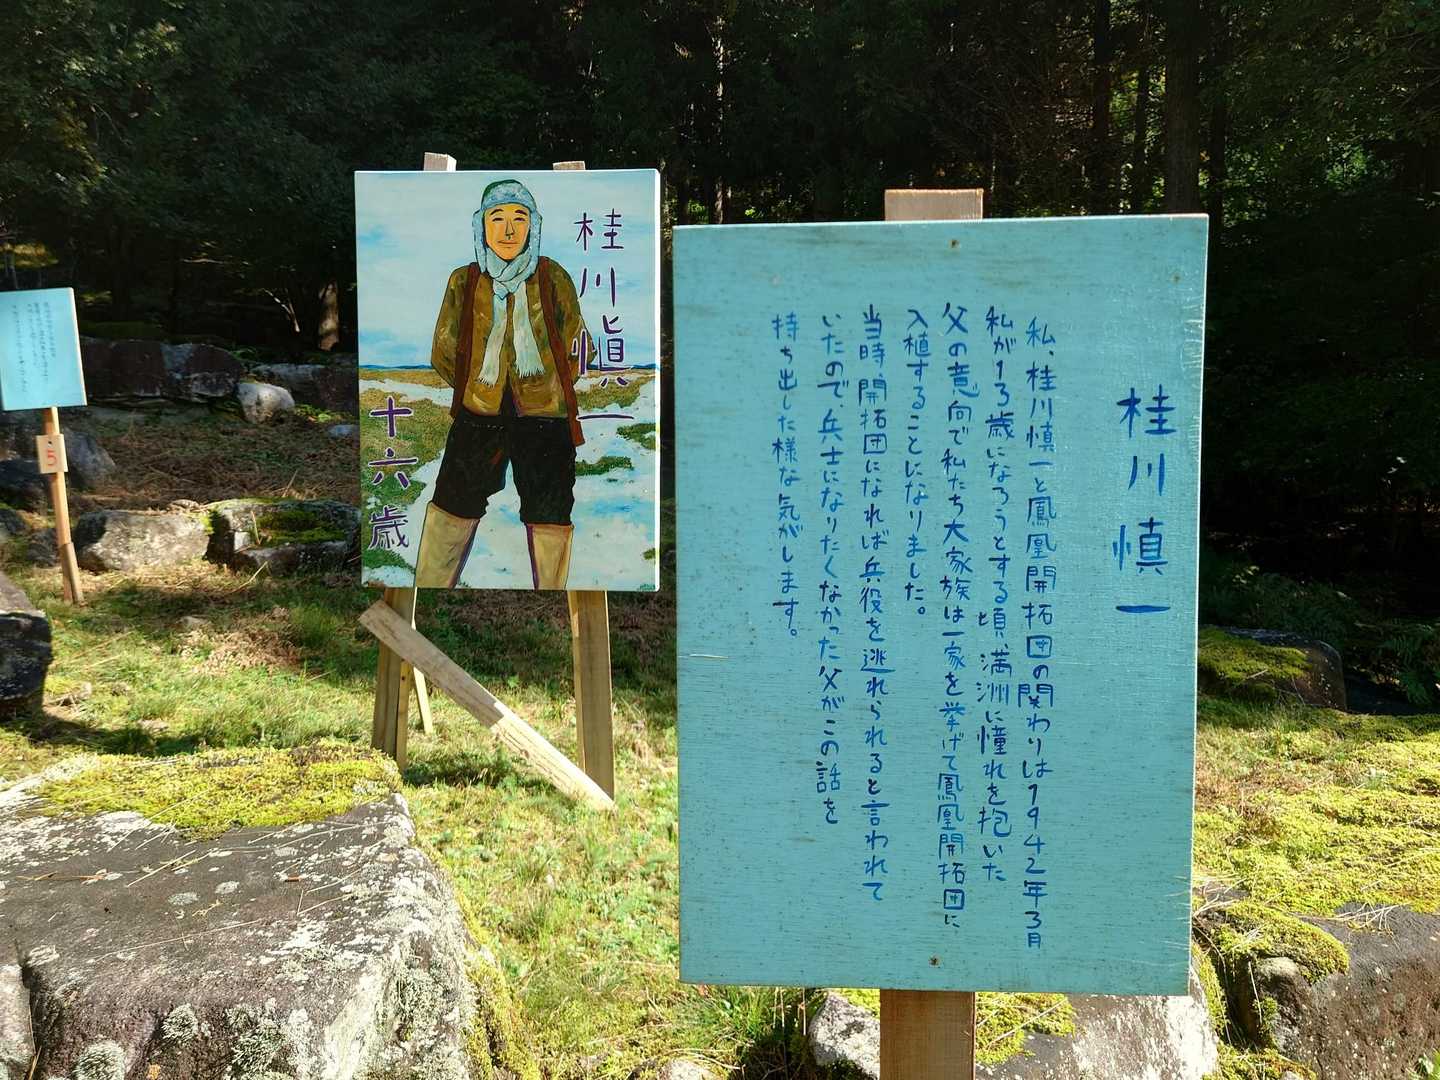 桂川慎一
私、桂川慎一と鳳凰開拓団の関わりは1942年3月
私が13歳になろうとする頃、満洲に憧れを抱いた
と
父の意向で私たち大家族は一家を挙げて鳳凰開拓団に
入植することになりました。
当時、開拓団になれば兵役を逃れられると言われて
いたので、兵士になりたくなかった父がこの話を
持ち出した様な気がします。
桂川慎一
十六歳
5